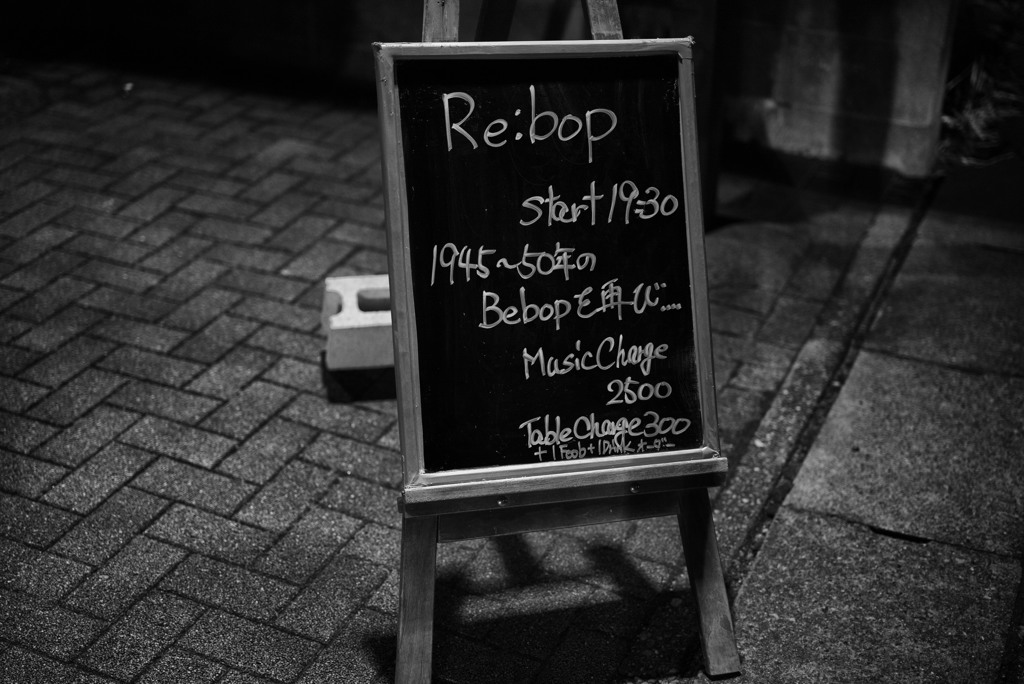 Re:bop
start 19:30
1945~50年の
Bebopを再び....
Music Charge
2500
Table Charge 300
+1Food+1Drink オーダー